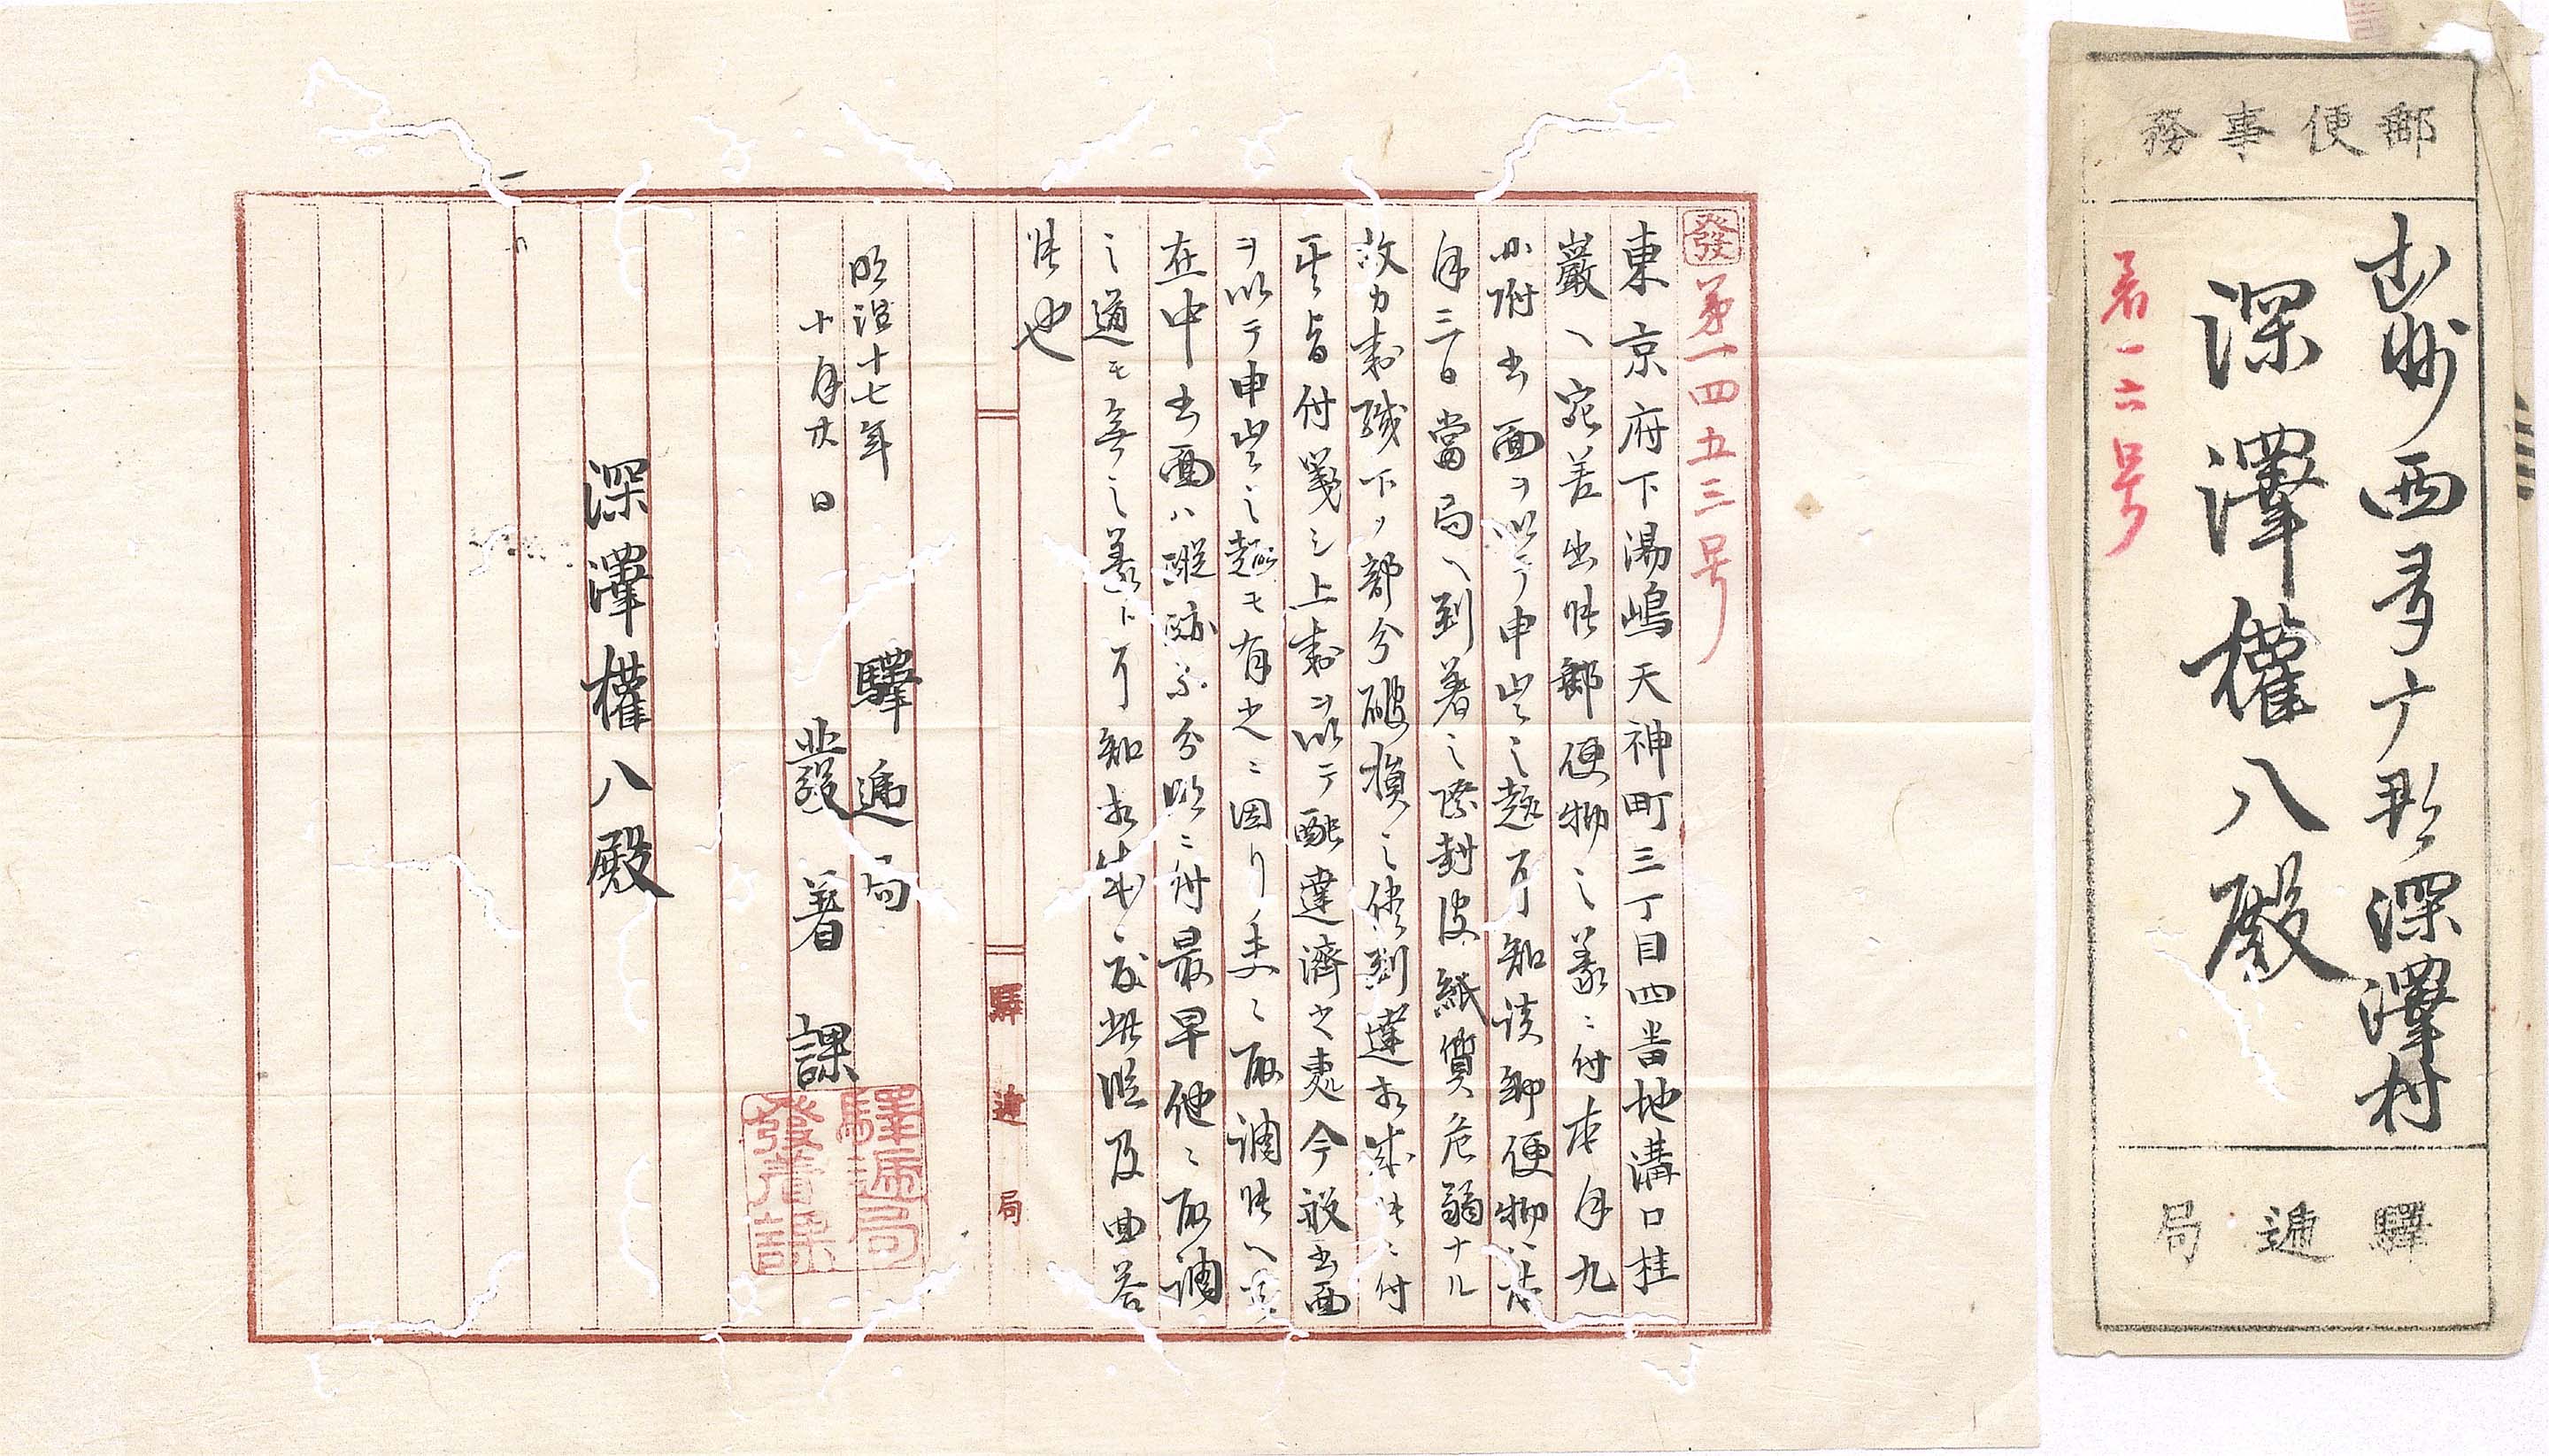 發第一四五三号
東京府下湯嶋天神町三丁目四番地溝口桂
巖ヘ宛差出候郵便物之義ニ付本月九
日附書面ヲ以テ申出之趣了知該郵便物ハ
月三日當局ヘ到著之際封皮紙質危弱ナル
故カ封緘下ノ部分破損之儘到達相成候ニ付
其旨付箋シ上封ヲ以テ配達濟之處今般書面
ヲ以テ申出之趣モ有之ニ因リ夫々取調候ヘ共
在中書面ハ蹤跡不分明ニ付最早他ニ取調
之道モ無之義ト可知相成度此段及回答
候也
明治十七年
十月廿日
驛遞局
發著課
深澤權八殿
驛遞局
驛遞局
發著課
郵便事務
武州西多广郡深澤村
深澤權八殿
着一六号
驛遞局